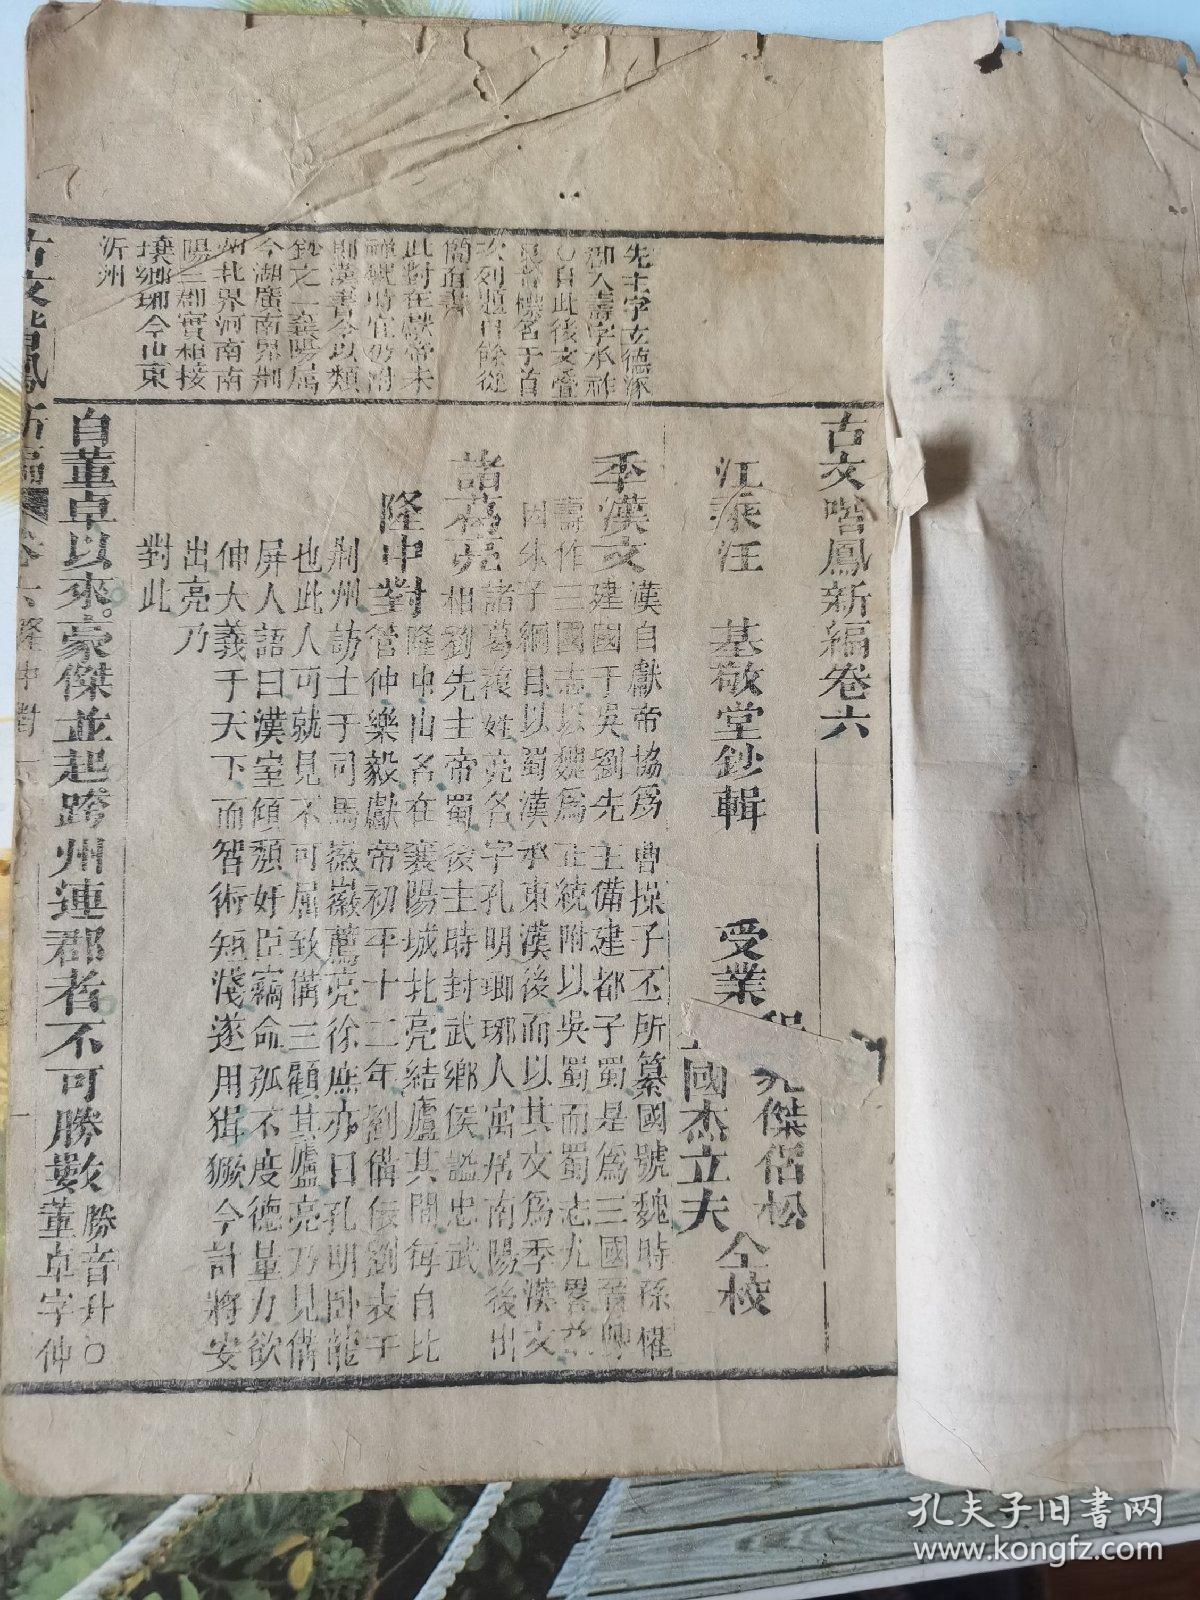 古文喈鳳新編卷六
江泰汪 基敬堂鈔輯 受業
傑侶松
國杰立夫
仝校
季漢文
漢自獻帝協爲曹操子丕所纂國號魏時孫權
建國于吳劉先主備建都子蜀是爲三國晉
壽作三國志以魏爲正統附以吳蜀而蜀志尤畧茲
因朱子綱目以蜀漢承東漢後而以其文爲季漢文
諸葛亮
諸葛複姓亮名字孔明瑯琊人寓居南陽後出
相劉先主帝蜀後主時封武鄉侯謚忠武
隆中對
隆中山名在襄陽城北亮結廬其間每自比
管仲樂毅獻帝初平十二年劉備依劉表于
荆州訪士于司馬徽徽薦亮徐庶亦曰孔明卧龍
也此人可就見不可屈致備三顧其廬亮乃見備
屏人語曰漢室傾頹奸臣竊命孤不度德量力欲
伸大義于天下而智術短淺遂用猖獗今計將安
出亮乃
對此
自董卓以來豪傑並起跨州連郡者不可勝數
勝音升○
董卓字仲
先主字玄德涿
郡人壽字承祚
○自此後文疊
見者標名于首
次列題目餘從
簡直書
此對在獻帝未
禪魏時宜仍附
則漢書今以類
鈔之一襄陽屬
今湖廣南界荆
州北界河南南
陽三郡實相接
壤瑯琊今山東
沂州
古文喈鳳新編 卷六 隆中對 一
孔夫子旧书网
www.kongfz.com